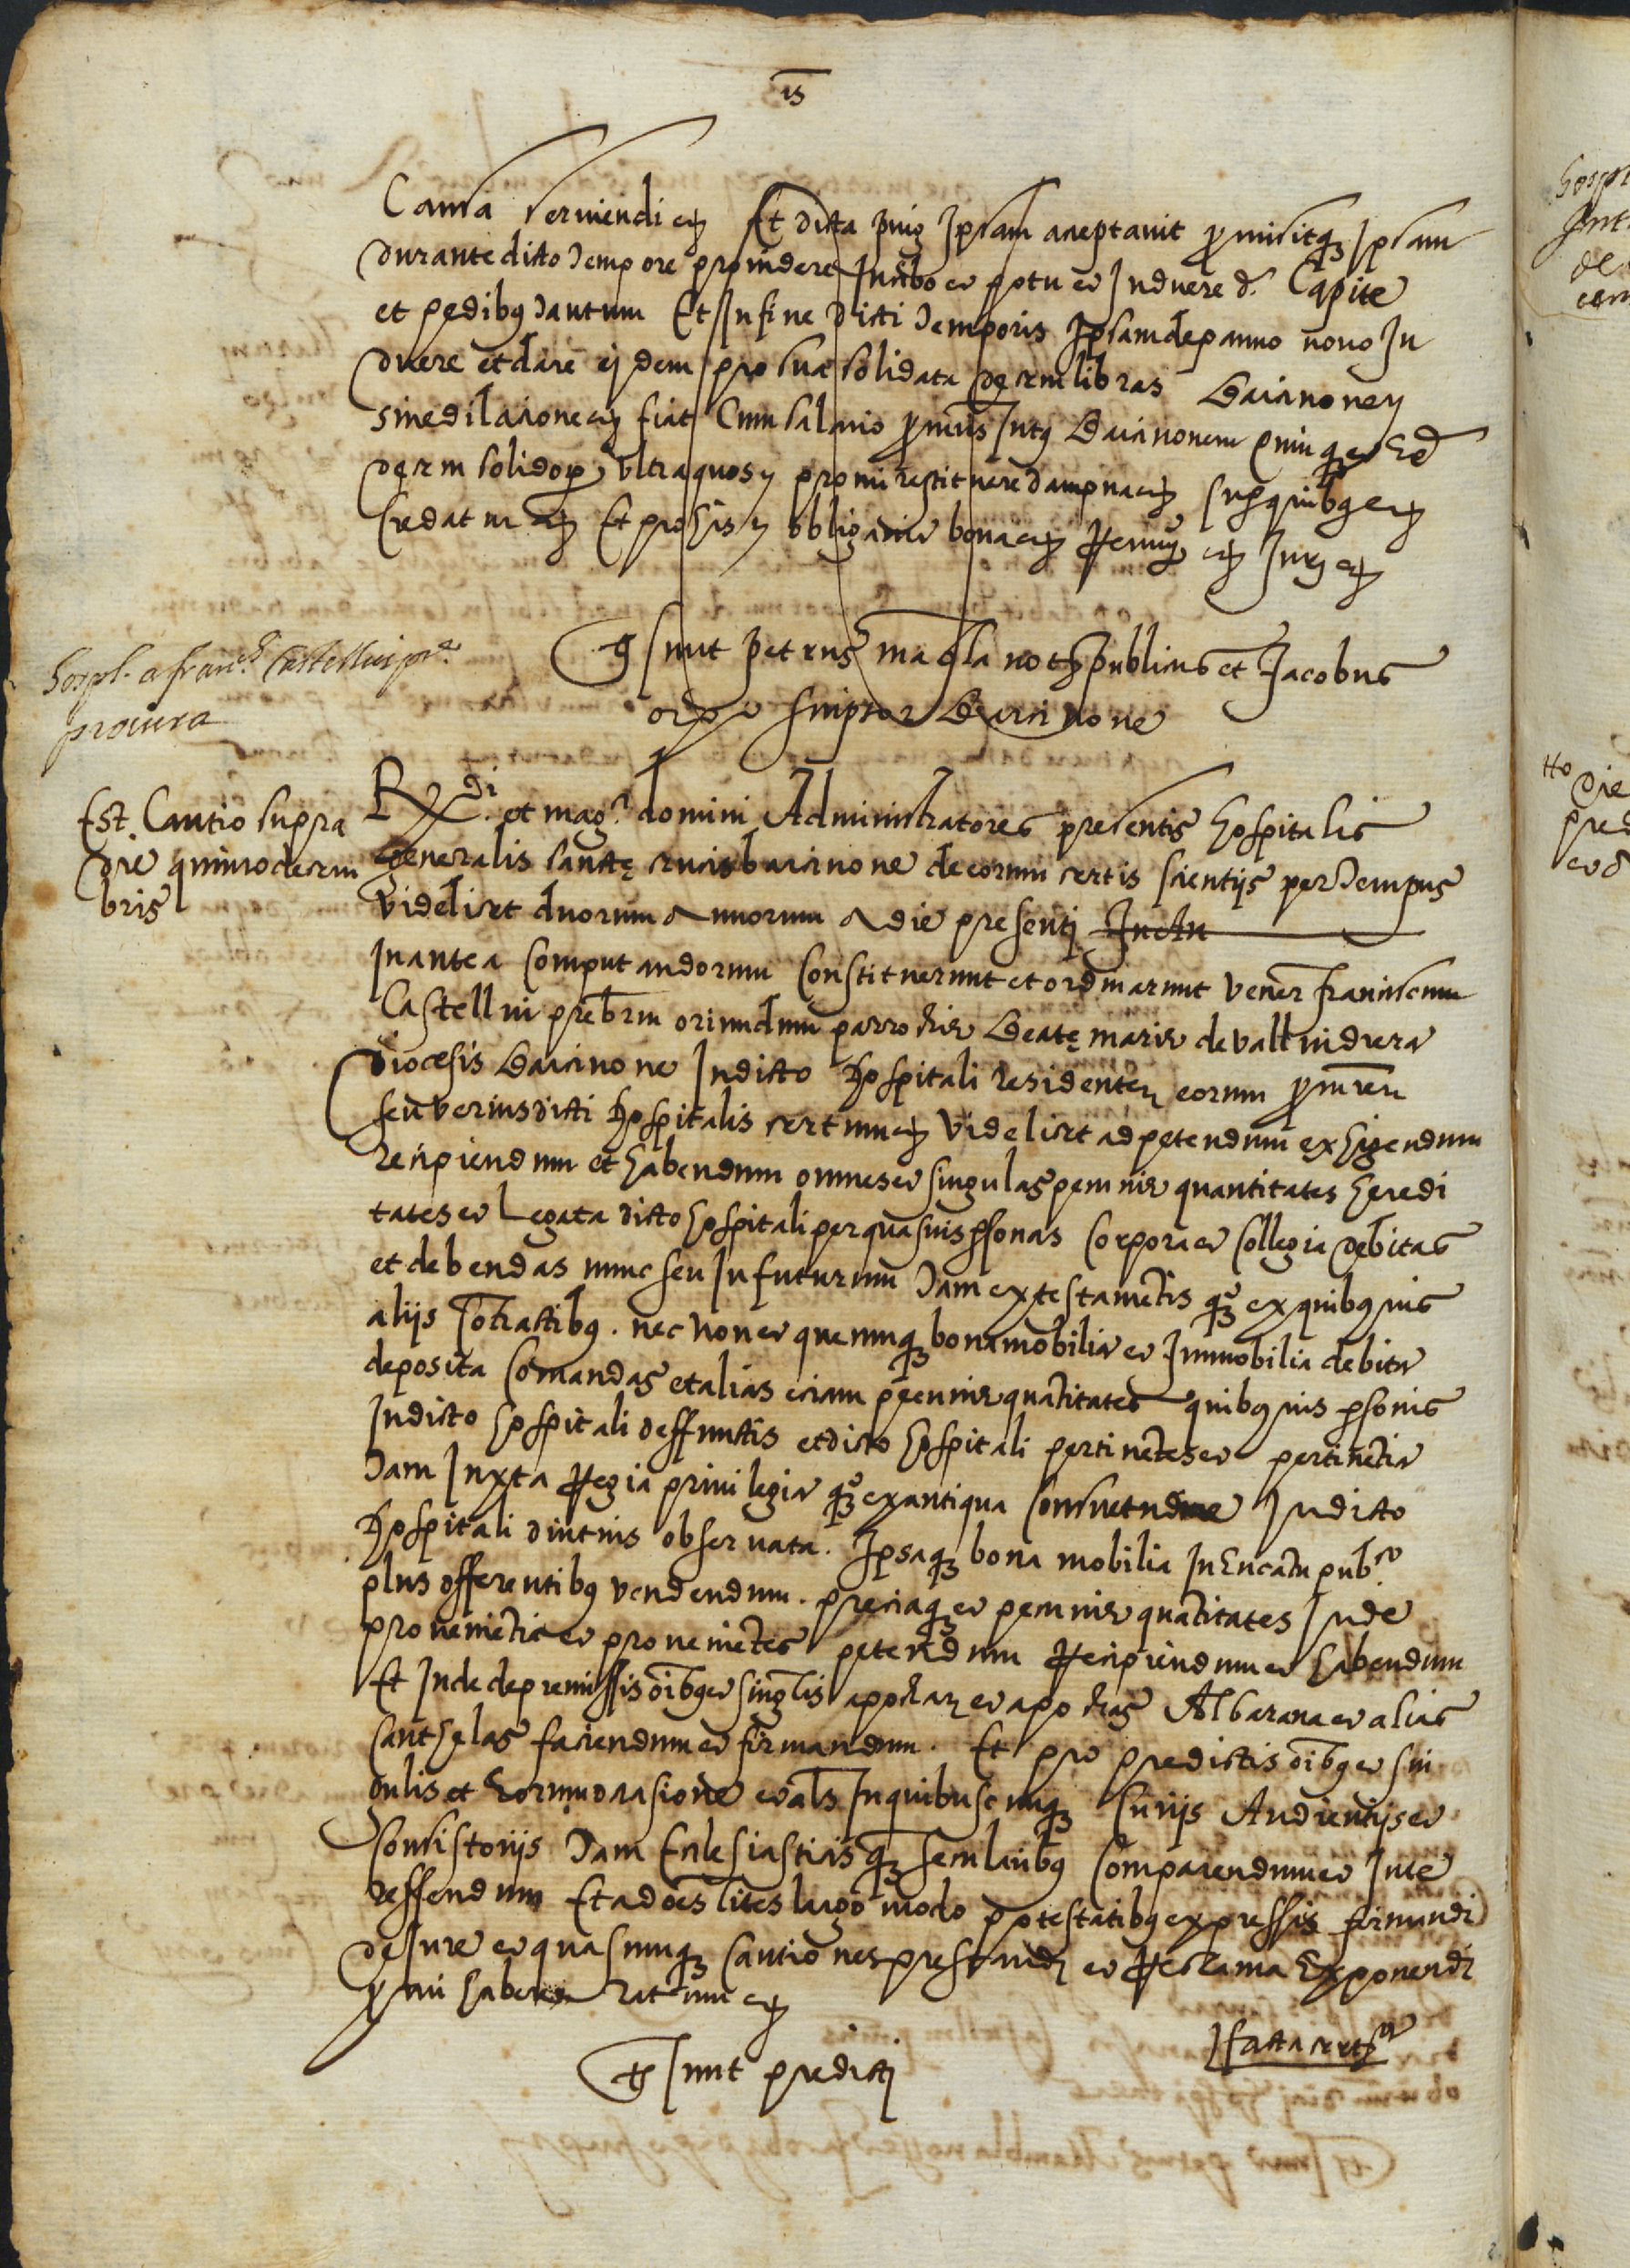 15
Causa serviendi etc Et dicta puig Ipsam acceptavit promisitque Ipsam
durante dicto tempore providere In cibo et potu et Induere de Capite
et pedibus tantum Et In fine dicti temporis Ipsam de panno novo In
duere et dare ei dem pro sua solidata decem libras Barcinonen
sine dilacione etc fiat Cum salario procuratoris Intus Barcinonem quinque et
decem solidorum ultra quos promi restituere dampna etc super quibus etc
Credatur etc Et pro his obligavit bona etc Renun etc Jur etc
Ts sunt petrus not publicus et Jacobus
scriptor Barcinone
hospl. a franc. Castellvi pre.
procura
Est Cautio supra
die quinto decem
bris
Rx.di et mag. domini Administratores presentis hospitalis
generalis sancte crucis barcinone de eorum certis scientijs per tempus
videlicet duorum Annorum A die presenti In An
In antea Computandorum Constituerunt et ordinarunt vener franciscum
Castellvi prebrm oriundum parrochie Beate marie de vallvidrera
diocesis Barcinone In dicto Hospitali residentem eorum procuratorem
seu verius dicti Hospitalis certum etc videlicet ad petendum exhigendum
recipiendum et habendum omnes et singulas pecunie quantitates heredi
tates et Legata dicto hospitali per quasvis personas Corpora et Collegia debitas
et debendas nunc seu In futurum tam ex testamentis quam ex quibusvis
alijs Contractibus. nec non et quecumque bona mobilia et Immobilia debita
deposita Comandas et alias eciam pecunie quantitates quibusvis personis
In dicto hospitali deffunctis et dicto hospitali pertinentes et pertinentia
tam Juxta Regia privilegia quam ex antiqua Consuetudine In dicto
Hospitali diutius observata. Ipsaque bona mobilia In Encantu publico
plus offerentibus vendendum. preciaque et pecunie quantitates Inde
provenientia et provenientes petendum Recipiendum et habendum
Et Inde de premissis omnibus et singulis apocham et apochas Albarana et alias
cauthelas faciendum et firmandum. Et pro predictis omnibus et sin
gulis et Eorum ocasione et als In quibuscumque Curijs Audientijs et
Consistorijs tam Ecclesiasticis quam secularibus Comparendum et Inte
ressendum Et ad omnes lites largo modo potestatibus expressis firmandi
de Jure et quascumque cautiones prestandi et Reclama Exponendi
promi habere ratum etc
Ts sunt predicti
facta